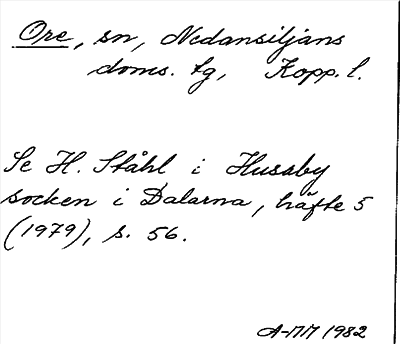 Ore, sn, Nedansiljans
doms. tg, Kopp. l.
Se H. Ståhl i Husaby
socken i Dalarna, häfte 5
(1979), s. 56.
A-MM 1982